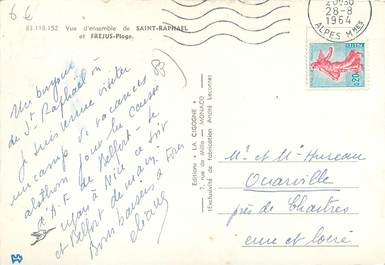 6 €
83.118.152 Vue d'ensemble de SAINT-RAPHAEL
et FREJUS-Plage.
28-8
1964
ALPES Mmes
0,20
Un bonjour
de St Raphaël où
je suis venue visiter
un camp de vacances
pour la Caisse
d'A.F. de Belfort. Je
à Nice ce soir
et Belfort demain.
Bons baisers à
Editions " LA CIGOGNE "
7, rue de Millo — MONACO
(Exclusivité de fabrication André Leconte)
Mr et Me Hureau
Ouarville
près de Chartres
eure et loire